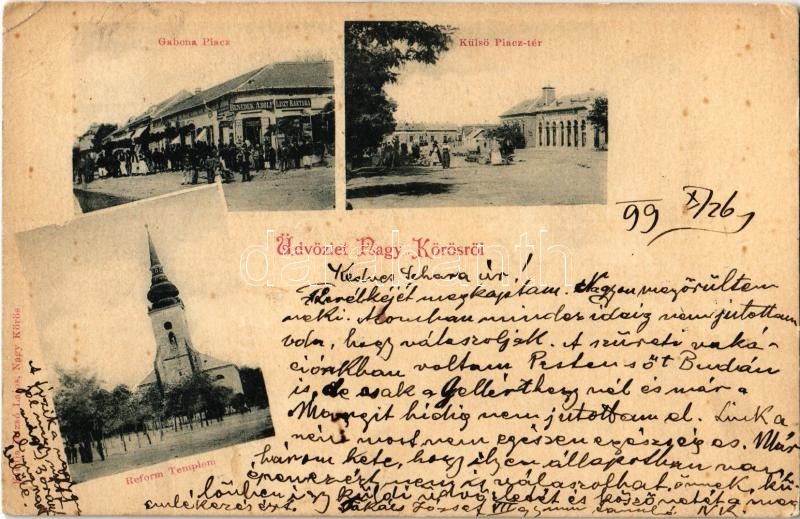 Gabona Piacz
Külsö Piacz-tér
BENEDEK ADOLF LISZT RAKTÁRA
99 X/26
Üdvözlet Nagy Körösröl
darabanth
Kedves úr!
Levélkéjét megkaptam. Nagyon megörültem
neki. Azonban mindez idáig nem jutottam
oda, hogy válaszoljak. A szüreti vaká-
cziónkban voltam Pesten söt Budán
is, de csak a Gellérthegynél és már a
Margit hidig nem jutottam el. Linka
néni most nem egészen egészséges. Már
három hete, hogy ilyen állapotban van
nem is válaszolhat önnek, kü-
lönben így küldi üdvözletét és köszönetét a meg
emlékezésért. Takács József
Reform Templom
Nagy Körös